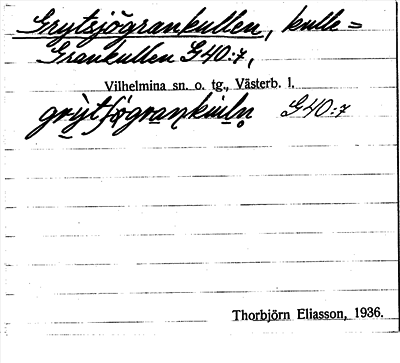 Grytsjögrankullen, kulle =
Grankullen G40:7,
Vilhelmina sn. o. tg., Västerb. l.
G40:7
Thorbjörn Eliasson, 1936.